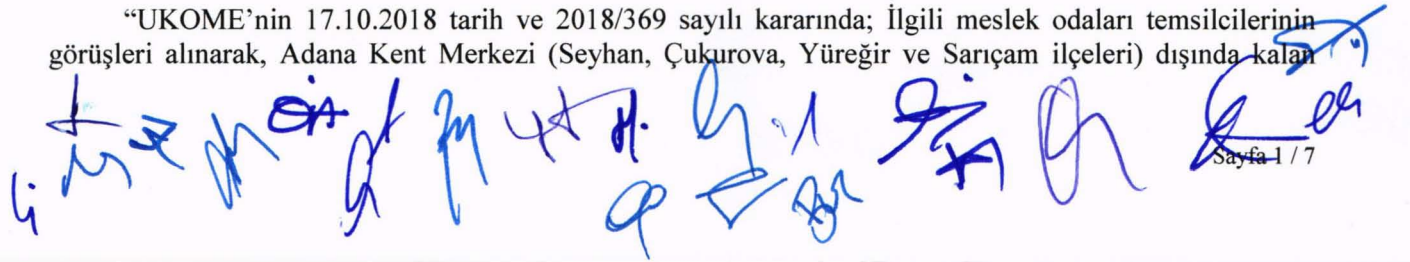 “UKOME’nin 17.10.2018 tarih ve 2018/369 sayılı kararında; İlgili meslek odaları temsilcilerinin
görüşleri alınarak, Adana Kent Merkezi (Seyhan, Çukurova, Yüreğir ve Sarıçam ilçeleri) dışında kalan
Sayfa 1 / 7